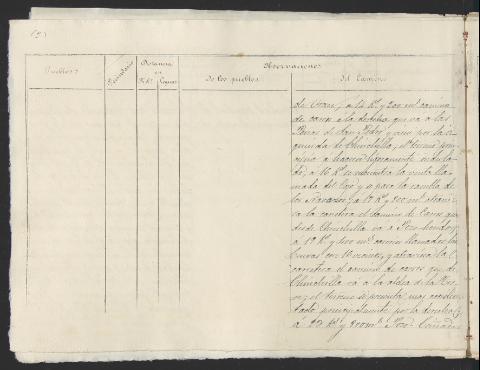 Pueblos
Vecindario
Distancia
en
K.s
Leguas
Observaciones
De los pueblos
Del Camino
á 14 K.s y 200 m.s camino
de carros á la derecha que va á las
Peñas de San Pedro y uno por la iz-
quierda de Chinchilla, el terreno prin-
cipia á hacerse ligeramente ondula-
do; á 16 K.s se encuentra la venta lla-
mada del
los á 17 K.s y 800 m.s atravie-
sa la carretera el camino de carros que
desde Chinchilla va á Pozo-hondo;
á 19 K.s y 400 m.s casas llamadas las
Cuevas con 16 vecinos, y atraviesa la
carretera el camino de carros que de
Chinchilla va á la aldea de la
el terreno se presenta mas acciden-
tado principalmente por la derecha;
á 22 K.s y 800 m.s Pozo-Cañada